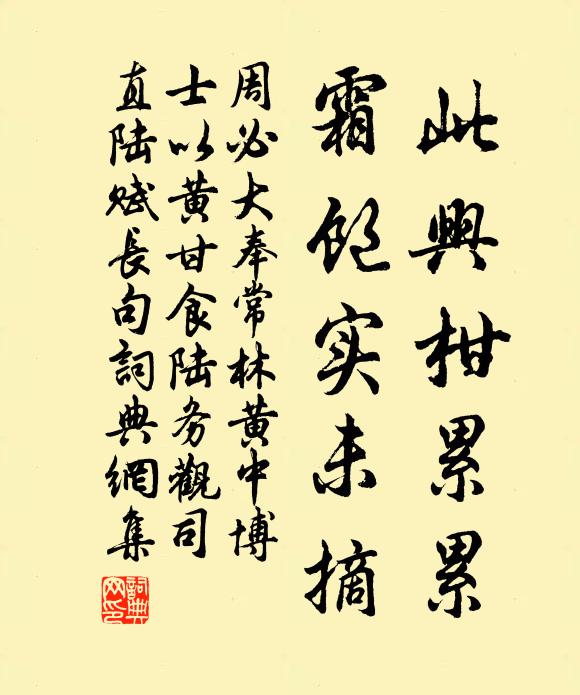 此興柑累累
霜飽实未摘
周必大奉常林黄中博
士以黄甘食陆务觀司
直陆赋長句詞典網集